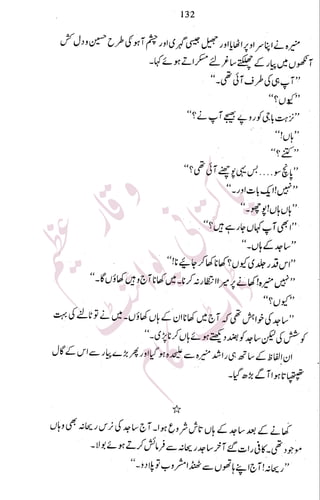 132
منیرہ نے اپنا سر اوپر اٹھایا اور جھیل جیسی گہری اور چشم آہو کی طرح حسین و دل کش
آنکھوں میں پیار کے چھلکتے ساغر لئے مسکراتے ہوئے کہا۔
”آپ ہی کی طرف آئی تھی۔“
”کیوں؟“
”نزہت باجی کو روپے بھیجے آپ نے؟“
”ہاں!“
”کتنے؟“
”پانچ سو.... بس یہی پوچھنے آئی تھی؟“
”نہیں! ایک بات اور۔“
”ہاں ہاں! پوچھو۔“
”ابھی آپ کہاں جا رہے ہیں؟“
”ساجد کے ہاں۔“
”اس قدر جلدی کیوں؟ کھانا کھا کر جائیے نا!“
”نہیں منیرہ! کھانے پر میرا انتظار نہ کرنا۔ میں کھانا آج وہیں کھاؤں گا۔“
”کیوں؟“
”ساجد کی خواہش تھی کہ آج میں کھانا ان کے ہاں کھاؤں۔ میں نے تو ٹالنے کی بہت
کوشش کی لیکن ساجد کو بضد دیکھتے ہوئے ہاں کرنا پڑی۔“
ان الفاظ کے ساتھ ہی راشد منیرہ سے علیحدہ ہو گیا اور پھر بڑے پیار سے اس کے گال
تھپتھپاتا ہوا آگے بڑھ گیا۔
☆
کھانے کے بعد ساجد کے ہاں تاش شروع ہوا۔ آج ساجد کی نرس ریحانہ بھی وہاں
موجود تھی۔ کافی رات گئے آخر ساجد ریحانہ سے فرمائش کرتے ہوئے بولا۔
”ریحانہ! آج اپنے ہاتھوں سے ٹھنڈا مشروب تو پلا دو۔“
وقار عظیم
پاکستانی پوائنٹ